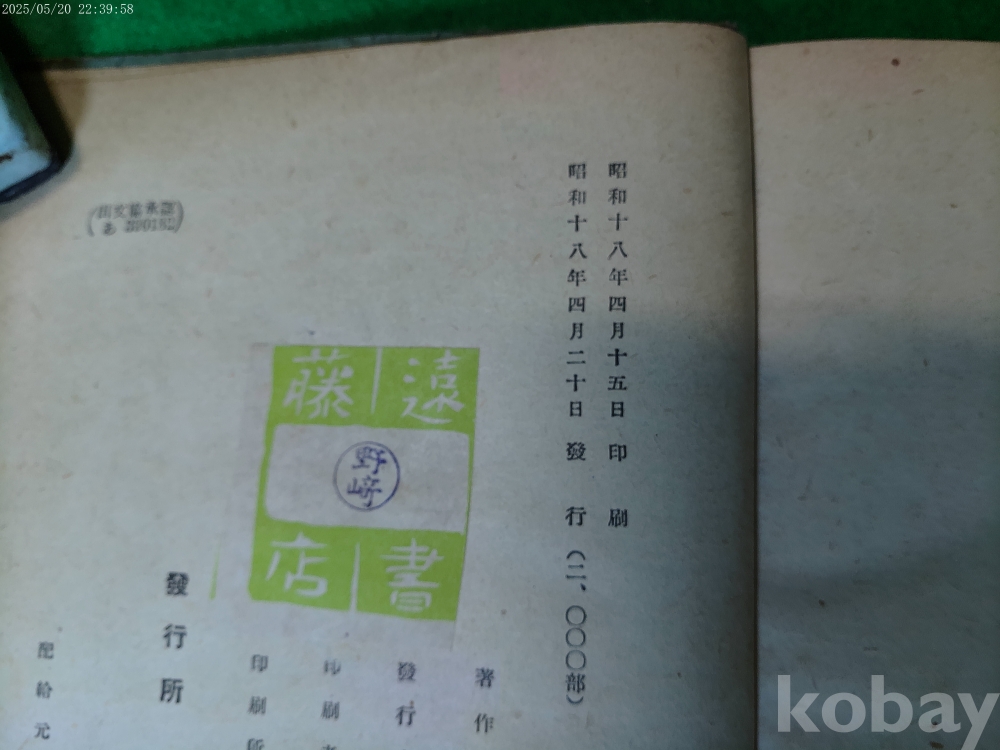 2025/05/20 22:39:58
昭和十八年四月十五日 印刷
昭和十八年四月二十日 發行(二、〇〇〇部)
著作
發行
印刷
印刷所
遠藤
書店
野﨑
發行所
配給元
kobay